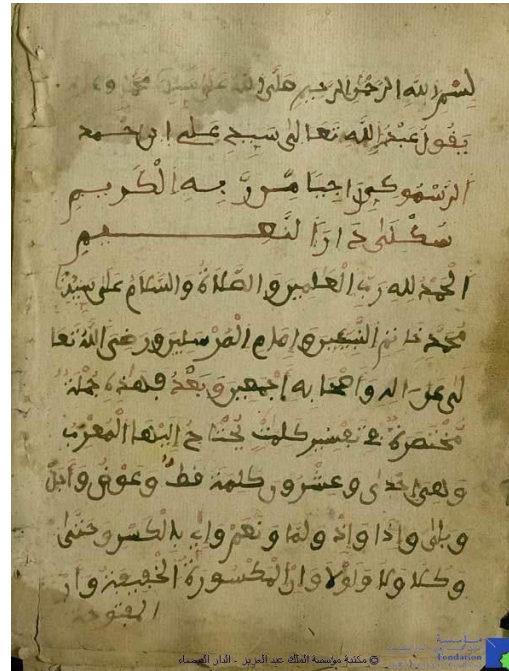 بسم الله الرحمن الرحيم صلى الله على سيدنا محمد وعلى
يقول عبد الله تعالى سيدي علي ابن احمد
الرسموكي راجيا من ربه الكريم
سكنى دار النعيم
الحمد لله رب العلمين والصلاة والسلام على سيدنا
محمد خاتم النبيين وامام المرسلين ورضي الله تعا
لى عن اله واصحابه اجمعين وبعد فهذه جملة
مختصرة في تفسير كلمت يحتاج اليها المعرب
وهي احدى وعشرون كلمة قط وعوض واجل
وبلى واذا واذ ولما ونعم واي بالكسر وحتى
وكلا ولا ولولا وان المكسورة الخفيفة وان
المفتوحة
مؤسسة
Foundation
© مكتبة مؤسسة الملك عبد العزيز - الدار البيضاء